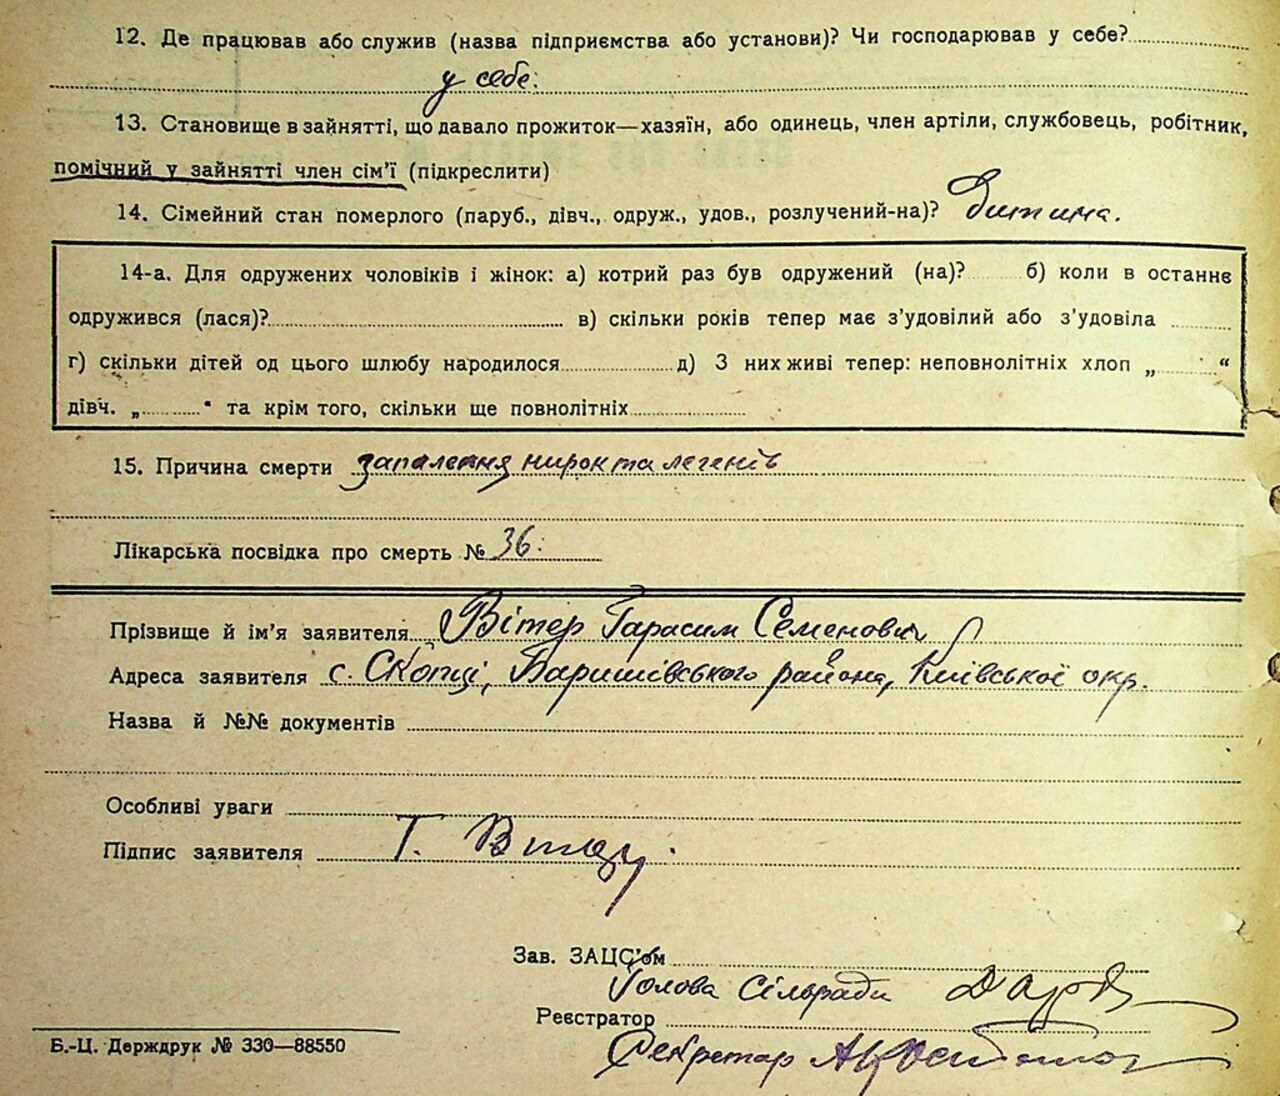 12. Де працював або служив (назва підприємства або установи)? Чи господарював у себе?
у себе.
13. Становище в зайнятті, що давало прожиток—хазяїн, або одинець, член артіли, службовець, робітник,
помічний у зайнятті член сім'ї (підкреслити)
14. Сімейний стан померлого (паруб., дівч., одруж., удов., розлучений-на)? Дитина.
14-а. Для одружених чоловіків і жінок: а) котрий раз був одружений (на)? б) коли в останнє
одружився (лася)? в) скільки років тепер має з'удовілий або з'удовіла
г) скільки дітей од цього шлюбу народилося д) З них живі тепер: неповнолітніх хлоп „ “
дівч. „ “ та крім того, скільки ще повнолітніх
15. Причина смерти запалення нирок та легенів
Лікарська посвідка про смерть № 36.
Прізвище й ім'я заявителя Вітер Гарасим Семенович
Адреса заявителя с. Скопці, Баришівського района, Київської окр.
Назва й №№ документів
Особливі уваги
Підпис заявителя Г. Вітер.
Зав. ЗАЦС'ом
Голова Сільради
Реєстратор
Секретар
Б.-Ц. Держдрук № 330—88550